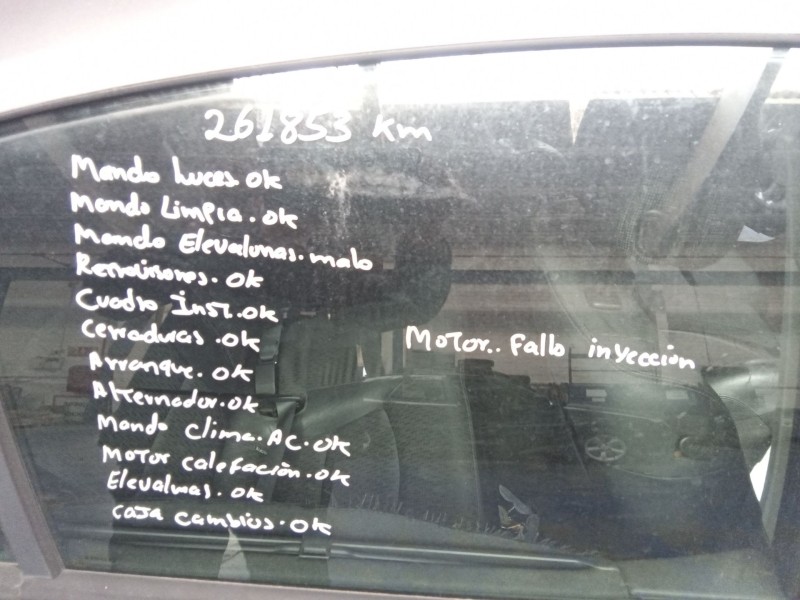 261853 km
Mando luces. OK
Mando Limpia. OK
Mando Elevalunas. malo
Retrovisores. OK
Cuadro Inst. OK
Cerraduras. OK
Arranque. OK
Alternador. OK
Mando clima. AC. OK
Motor calefación. OK
Elevalunas. OK
Caja cambios. OK
Motor.. Fallo inyección